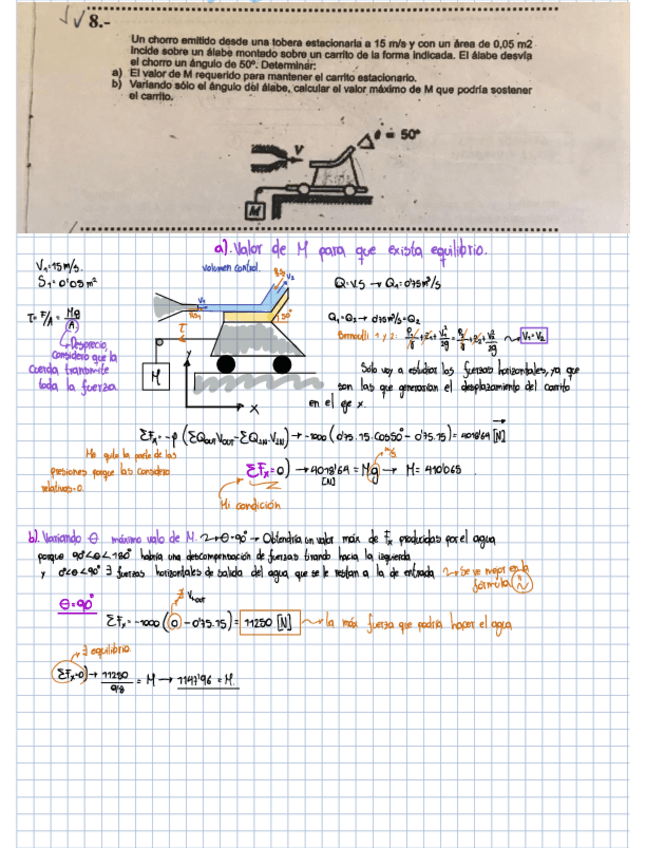 8.-
Un chorro emitido desde una tobera estacionaria a 15 m/s y con un área de 0,05 m2
incide sobre un álabe montado sobre un carrito de la forma indicada. El álabe desvía
el chorro un ángulo de 50º. Determinar:
a) El valor de M requerido para mantener el carrito estacionario.
b) Variando sólo el ángulo del álabe, calcular el valor máximo de M que podría sostener
el carrito.
V
θ = 50°
M
a). Valor de M para que exista equilibrio.
V₁=15m/s.
S₁=0'05m²
T=F/A = Mg/(A)
Desprecio,
considero que la
cuerda transmite
toda la fuerza
volumen control.
V₁
V₂
50°
T
M
Y
X
Q=V.S → Q₁=0'75m³/s
Q₁=Q₂→ 0'75m³/s=Q₂
Bernoulli 1 y 2: P₁/γ+z₁+V₁²/2g = P₂/γ+z₂+V₂²/2g ⇝ V₁=V₂
Solo voy a estudiar las fuerzas horizontales, ya que
son las que generarían el desplazamiento del carrito
en el eje x.
ΣFx=-ρ (ΣQout Vout-ΣQIN.VIN) → -1000 (0'75.15.cos50°-0'75.15)=4018'64 [N]
Me quito la parte de las
presiones porque las considero
relativas=0.
ΣFx=0) → 4018'64 = Mg → M=410'065
[N]
m/s
Mi condición
b). Variando θ máximo valo de M. → θ=90° → Obtendría un valor máx de Fx producidas por el agua
porque 90<θ<180° habría una descompensación de fuerzas tirando hacia la izquierda
y 0<θ<90° ∃ fuerzas horizontales de salida del agua que se le restan a la de entrada → se ve mejor en la
fórmula
θ=90°
∄ Vxout
ΣFx=-1000 (0-0'75.15)= 11250 [N] → la máx fuerza que podría hacer el agua
∃ equilibrio
ΣFx=0) → 11250/9'8 = M → 1147'96 = M.